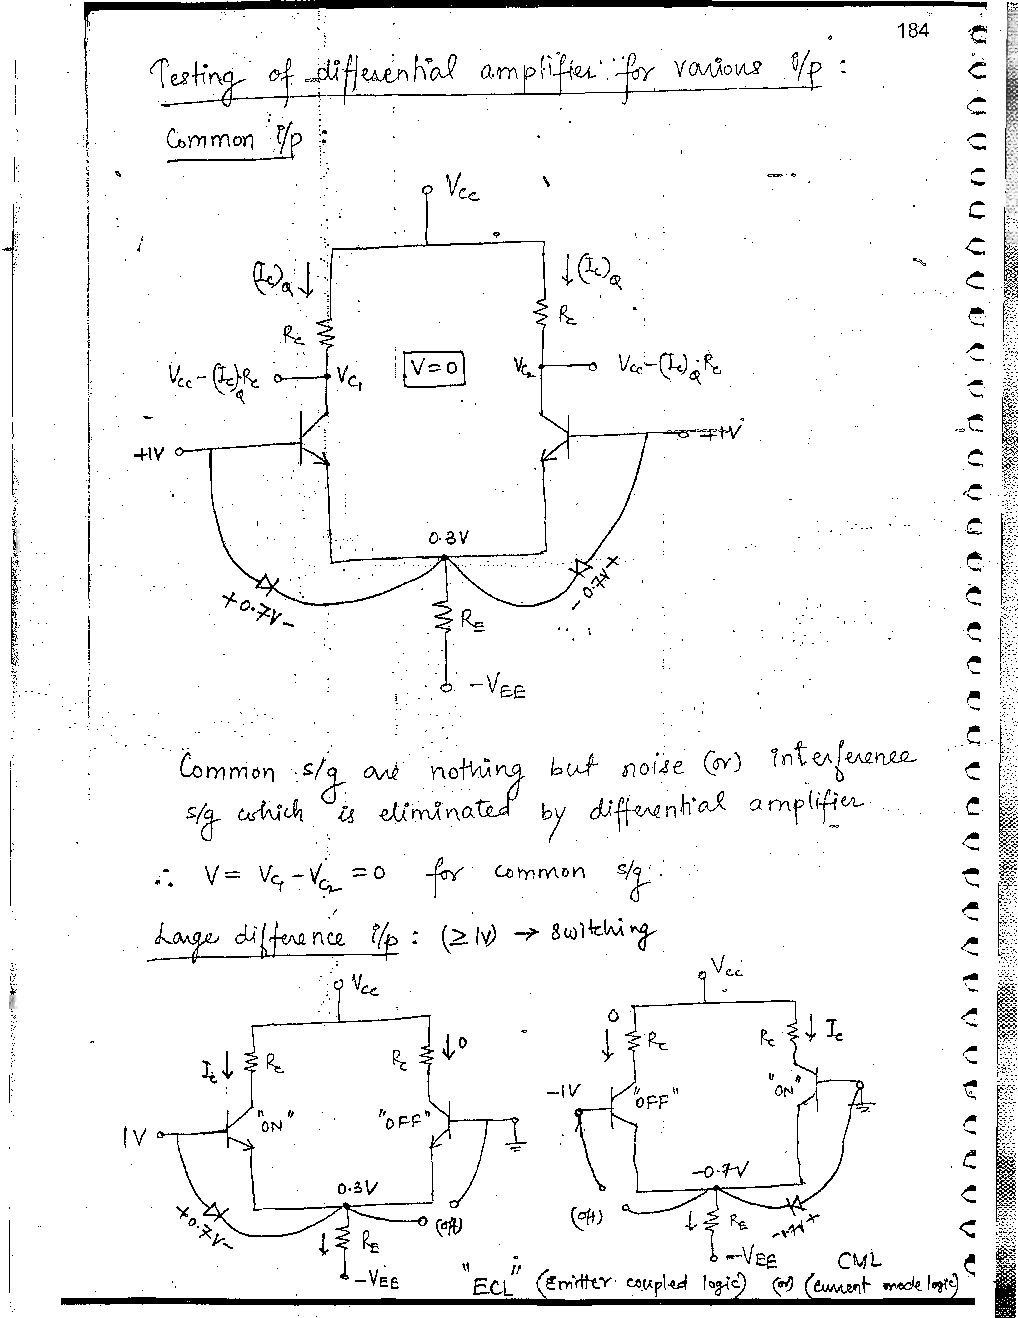 184
Testing of differential amplifier for various i/p :
Common i/p :
Vcc
(Ic)Q ↓
↓ (Ic)Q
Rc
Rc
Vcc-(Ic)Q.Rc
VC1
V=0
VC2
Vcc-(Ic)Q.Rc
+1V
+1V
0.3V
+0.7V-
-0.7V+
RE
-VEE
Common s/g are nothing but noise (or) interference
s/g which is eliminated by differential amplifier
∴ V = VC1 - VC2 = 0 for common s/g.
Large difference i/p : (≥1V) → switching
Vcc
Vcc
Ic ↓
Rc
Rc
↓0
0
↓
Rc
Rc
↓ Ic
1V
"ON"
"OFF"
-1V
"OFF"
"ON"
0.3V
-0.7V
+0.7V-
(off)
(off)
-0.7V+
↓
RE
↓
RE
-VEE
-VEE
CML
"ECL" (Emitter coupled logic) (or) (current mode logic)